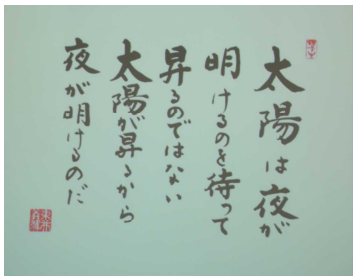 太陽は夜が
明けるのを待って
昇るのではない
太陽が昇るから
夜が明けるのだ